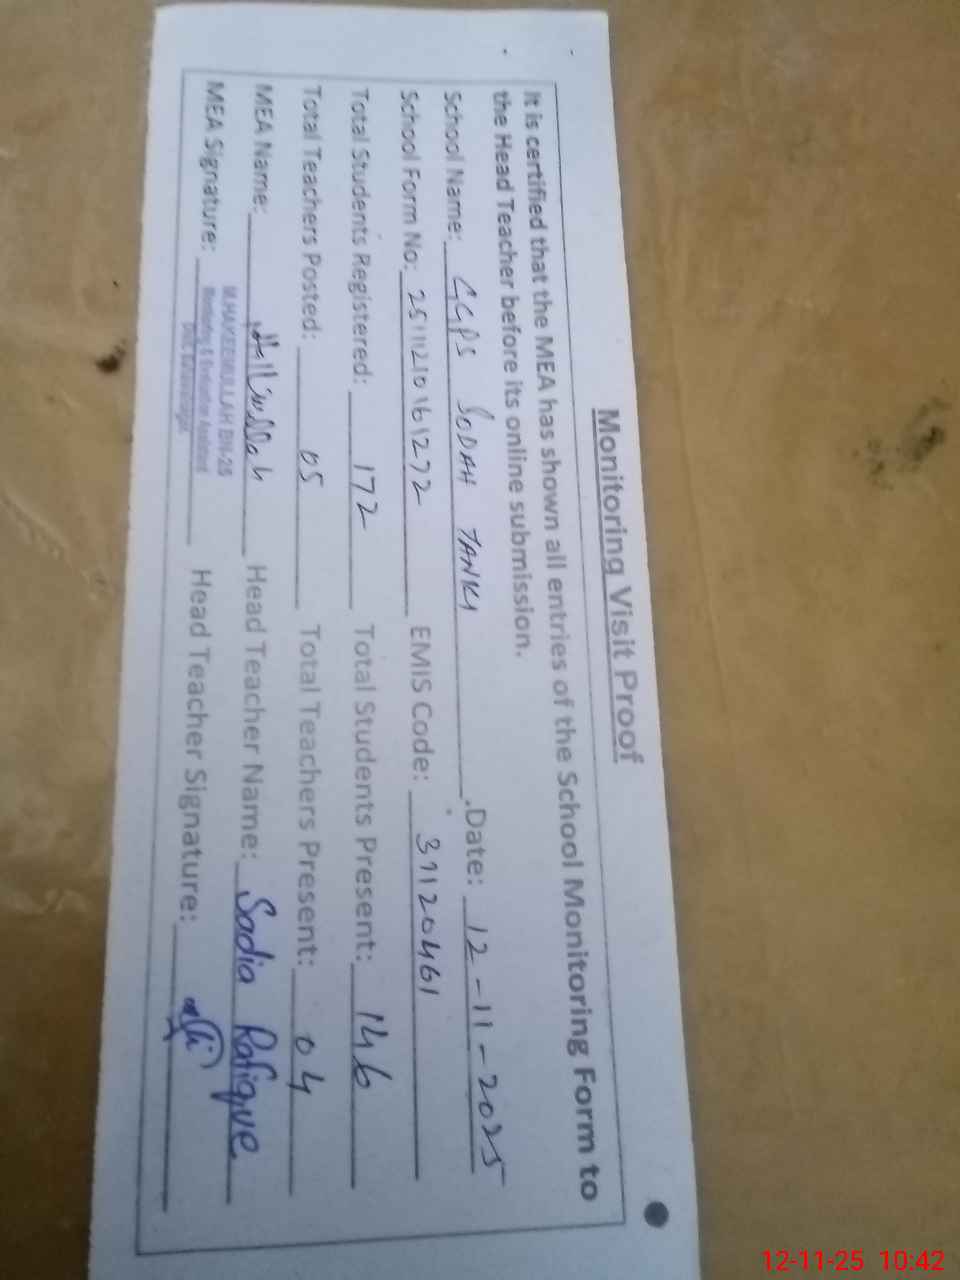 Monitoring Visit Proof
It is certified that the MEA has shown all entries of the School Monitoring Form to
the Head Teacher before its online submission.
School Name: GGPS SODAH TANKI .Date: 12-11-2025
School Form No: 25111210161272 EMIS Code: 31120461
Total Students Registered: 172 Total Students Present: 146
Total Teachers Posted: 05 Total Teachers Present: 04
MEA Name: Head Teacher Name: Sadia Rafique
MEA Signature: Head Teacher Signature:
M.HAKEEMULLAH BN-25
Monitoring & Evaluation Assistant
12-11-25 10:42